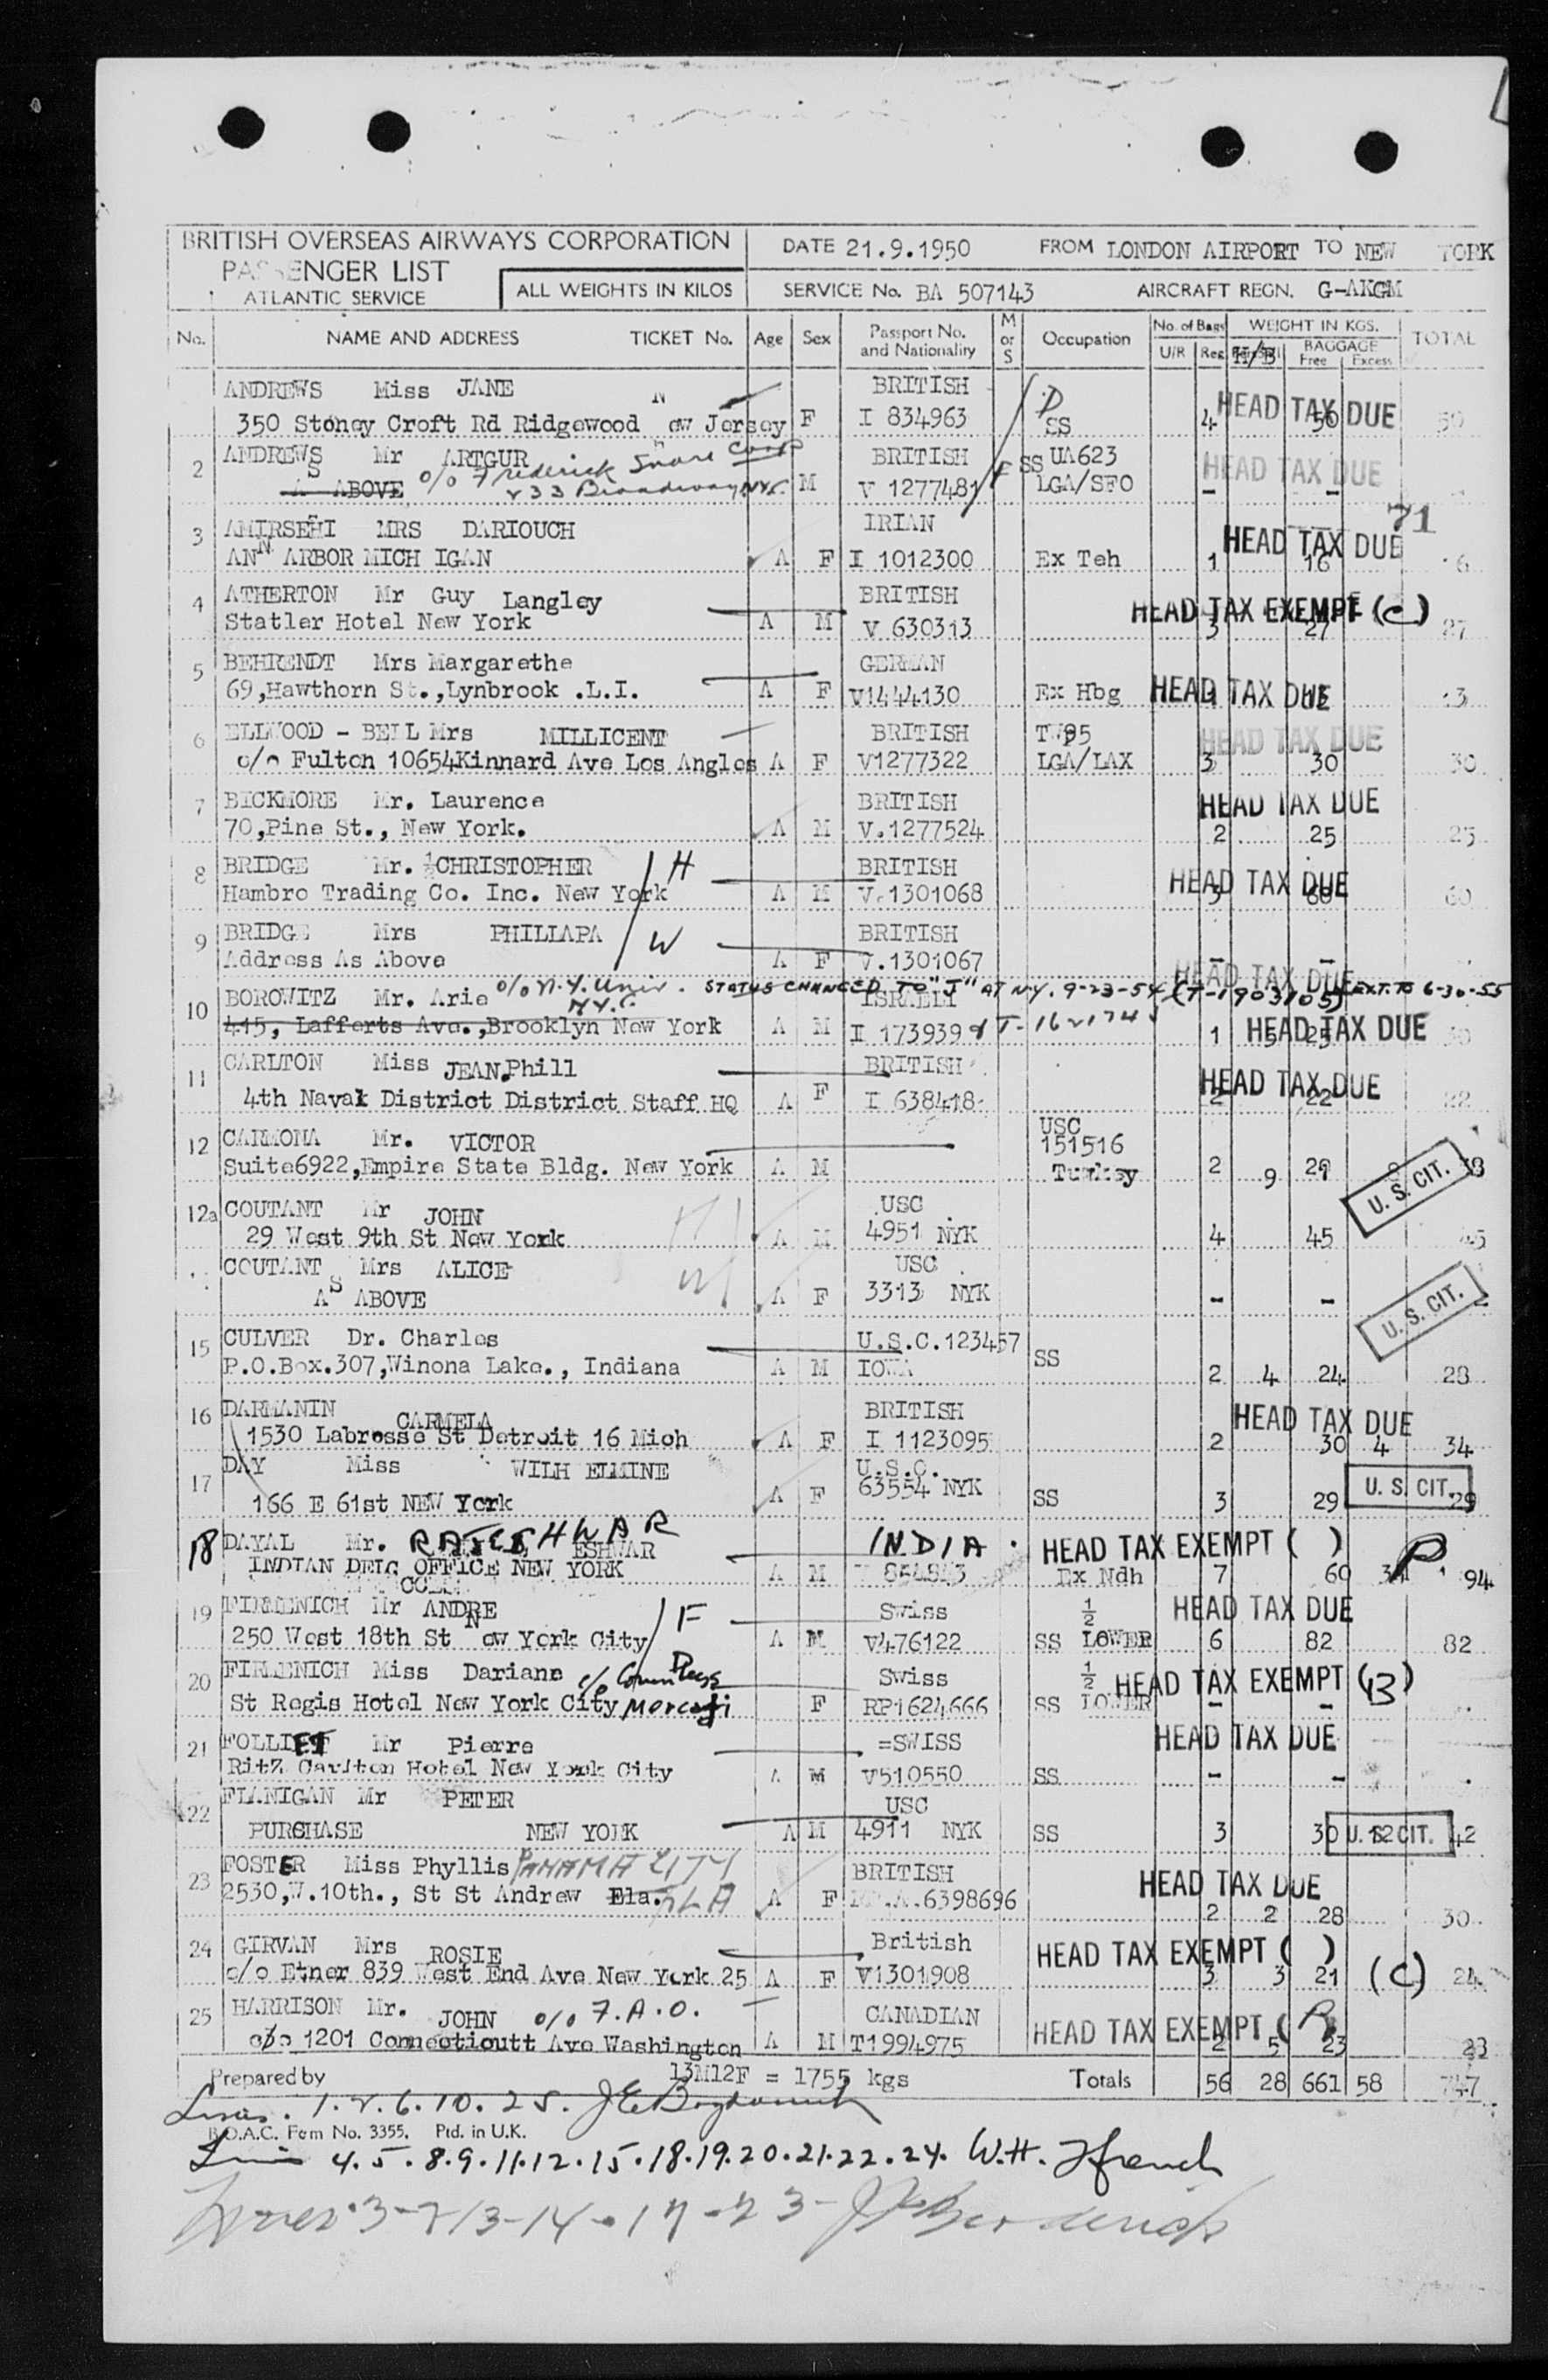 BRITISH OVERSEAS AIRWAYS CORPORATION DATE 21.9.1950 FROM LONDON AIRPORT TO NEW YORK
PASSENGER LIST
ATLANTIC SERVICE ALL WEIGHTS IN KILOS SERVICE No. BA 507143 AIRCRAFT REGN. G-AKGM
No. NAME AND ADDRESS TICKET No. Age Sex Passport No. and Nationality M or S Occupation No. of Bags U/R Reg. WEIGHT IN KGS. H/B BAGGAGE Free Excess TOTAL
ANDREWS Miss JANE BRITISH HEAD TAX DUE
350 Stoney Croft Rd Ridgewood New Jersey F I 834963 SS 4 50 50
2 ANDREWS Mr ARTGUR BRITISH SS UA623 HEAD TAX DUE
AS ABOVE c/o Frederick Snare Corp 233 Broadway NYC M V 1277481 LGA/SFO - -
71
3 AMIRSEHI MRS DARIOUCH IRIAN HEAD TAX DUE
ANN ARBOR MICH IGAN A F I 1012300 Ex Teh 1 16 16
4 ATHERTON Mr Guy Langley BRITISH HEAD TAX EXEMPT (c)
Statler Hotel New York A M V 630313 3 27 27
5 BEHRENDT Mrs Margarethe GERMAN HEAD TAX DUE
69,Hawthorn St.,Lynbrook .L.I. A F V1444130 Ex Hbg 13
6 ELLWOOD - BELL Mrs MILLICENT BRITISH HEAD TAX DUE
c/o Fulton 10654Kinnard Ave Los Angles A F V1277322 LGA/LAX 3 30 30
7 BICKMORE Mr. Laurence BRITISH HEAD TAX DUE
70,Pine St., New York. A M V.1277524 2 25 25
8 BRIDGE Mr. ½CHRISTOPHER H BRITISH HEAD TAX DUE
Hambro Trading Co. Inc. New York A M V.1301068 3 60 60
9 BRIDGE Mrs PHILLAPA W BRITISH
Address As Above A F V.1301067 - -
HEAD TAX DUE
10 BOROWITZ Mr. Arie c/o N.Y. Univ. N.Y.C. STATUS CHANGED TO "J" AT N.Y. 9-23-54 (T-1903105) EXT. TO 6-30-55
ISRAELI
415, Lafferts Ave.,Brooklyn New York A M I 173939 1 5 25 HEAD TAX DUE 30
11 CARLTON Miss JEAN.Phill BRITISH HEAD TAX DUE
4th Naval District District Staff HQ A F I 638418 2 22 22
12 CARMONA Mr. VICTOR USC 151516
Suite6922,Empire State Bldg. New York A M Turkey 2 9 29 38
U. S. CIT.
12a COUTANT Mr JOHN H USC
29 West 9th St New York A M 4951 NYK 4 45 45
COUTANT Mrs ALICE W USC
AS ABOVE A F 3313 NYK - -
U. S. CIT.
15 CULVER Dr. Charles U.S.C.123457
P.O.Box.307,Winona Lake., Indiana A M IOWA SS 2 4 24 28
16 DARMANIN CARMELA BRITISH HEAD TAX DUE
1530 Labrosse St Detroit 16 Mich A F I 1123095 2 30 4 34
17 DAY Miss WILH ELMINE U.S.C.
166 E 61st NEW York A F 63554 NYK SS 3 29 U. S. CIT. 29
18 DAYAL Mr. RAJESHWAR INDIA HEAD TAX EXEMPT ( ) P
INDIAN DELG OFFICE NEW YORK A M Ex Ndh 7 60 94
19 FIRMENICH Mr ANDRE F Swiss ½ HEAD TAX DUE
250 West 18th St New York City A M V476122 SS LOWER 6 82 82
20 FIRMENICH Miss Dariane c/o Countess Mercati Swiss ½ HEAD TAX EXEMPT (B)
St Regis Hotel New York City F RP1624666 SS LOWER - -
21 FOLLIET Mr Pierre =SWISS HEAD TAX DUE
Ritz Carlton Hotel New York City A M V510550 SS - -
22 FLANIGAN Mr PETER USC
PURCHASE NEW YORK A M 4911 NYK SS 3 30 12 U. S. CIT. 42
23 FOSTER Miss Phyllis PANAMA CITY BRITISH HEAD TAX DUE
2530,W.10th., St St Andrew Ela. FLA A F 6398696 2 2 28 30
24 GIRVAN Mrs ROSIE British HEAD TAX EXEMPT ( )
c/o Etner 839 West End Ave New York 25 A F V1301908 3 3 21 (C) 24
25 HARRISON Mr. JOHN c/o F.A.O. CANADIAN HEAD TAX EXEMPT (
c/o 1201 Connecticutt Ave Washington A M T1994975 2 5 23 28
Prepared by 13M12F = 1755 kgs Totals 56 28 661 58 747
Lines. 1.2.6.10.25.
B.O.A.C. Form No. 3355. Ptd. in U.K.
Lines 4.5.8.9.11.12.15.18.19.20.21.22.24. W.H. French
Lines 3-7-13-14-17-23-